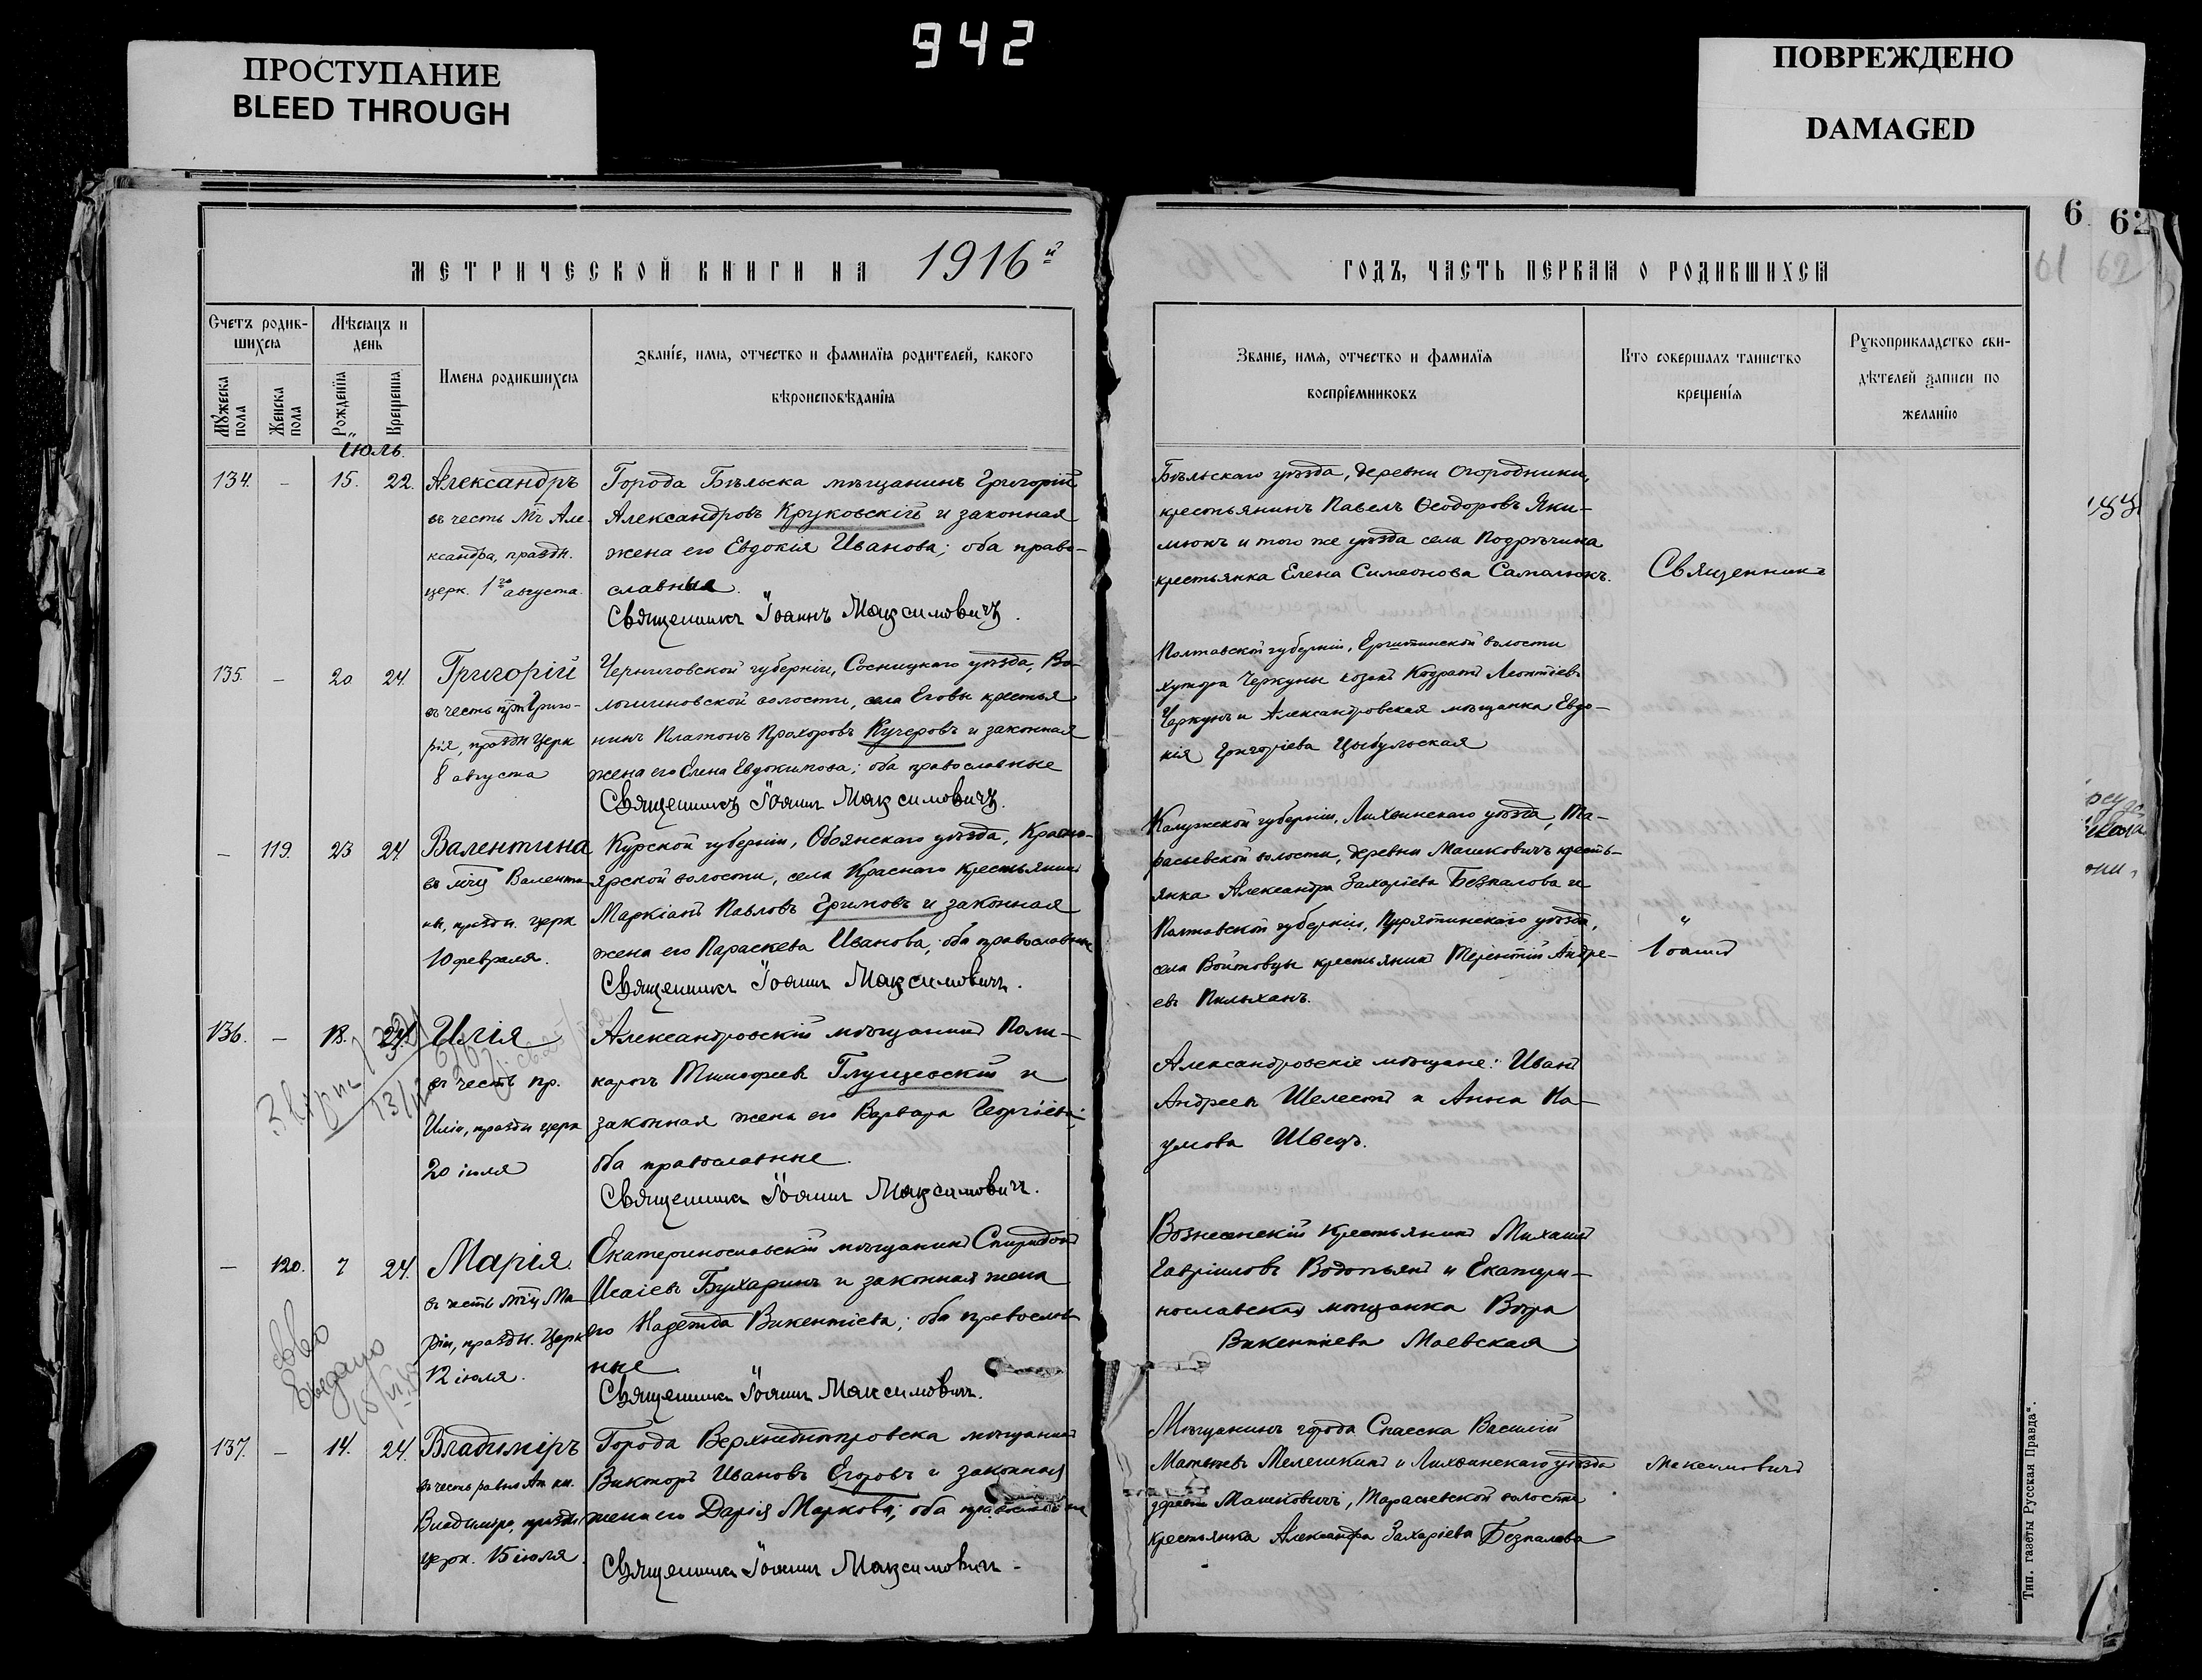 942
ПРОСТУПАНИЕ
BLEED THROUGH
ПОВРЕЖДЕНО
DAMAGED
6 62
61 62
МЕТРИЧЕСКОЙ КНИГИ НА 1916й
ГОДЪ, ЧАСТЬ ПЕРВАЯ О РОДИВШИХСЯ
Счетъ родив-
шихся
Мѣсяцъ и
день
Имена родившихся
Званіе, имя, отчество и фамилія родителей, какого
вѣроисповѣданія
Мужеска
пола
Женска
пола
Рожденія
Крещенія
Званіе, имя, отчество и фамилія
воспріемниковъ
Кто совершалъ таинство
крещенія
Рукоприкладство сви-
дѣтелей записи по
желанію
Іюль.
134. - 15. 22. Александръ
въ честь Мч Але-
ксандра, праздн.
церк. 1го августа.
Города Бѣльска мѣщанинъ Григорій
Александровъ Круковскій и законная
жена его Евдокія Иванова; оба право-
славные.
Священникъ Іоаннъ Максимовичъ.
Бѣльскаго уѣзда, деревни Огородники,
крестьянинъ Павелъ Ѳеодоровъ Яки-
мюкъ и того же уѣзда села Подрѣчина
крестьянка Елена Симеонова Самалюкъ.
Священникъ
135. - 20 24. Григорій
въ честь прп Григо-
рія, праздн церк
8 августа
Черниговской губерніи, Сосницкаго уѣзда, Во-
лосиновской волости, села Еговы крестья
нинъ Платонъ Прохоровъ Кучеровъ и законная
жена его Елена Евдокимова; оба православные
Священникъ Іоаннъ Максимовичъ.
Полтавской губерніи, волости
хутора Черкуны козакъ Кодратъ Леонтіевъ
Черкунъ и Александровская мѣщанка Евдо-
кія Григоріева Цыбульская
- 119. 23 24 Валентина
въ мчц Валенти-
ны, праздн. церк
10 февраля.
Курской губерніи, Обоянскаго уѣзда, Красно-
ярской волости, села Краснаго крестьянинъ
Маркіанъ Павловъ Гримовъ и законная
жена его Параскева Иванова, оба православные
Священникъ Іоаннъ Максимовичъ.
Калужской губерніи, Лихвинскаго уѣзда, Та-
расьевской волости, деревни Машковичъ кресть-
янка Александра Захаріева Безпалова и
Полтавской губерніи, Пирятинскаго уѣзда,
села Войтовцы крестьянинъ Терентій Андре-
евъ Пилиханъ.
Іоаннъ
136. - 18. 24. Илія
въ честь пр.
Иліи, праздн церк
20 іюля
Александровскій мѣщанинъ Поли-
карпъ Тимофеевъ Глущевскій и
законная жена его Варвара Георгіева;
оба православные.
Священникъ Іоаннъ Максимовичъ.
Александровскіе мѣщане: Иванъ
Андреевъ Шелестъ и Анна На-
умова Швецъ.
- 120. 7 24. Марія.
въ честь мчц Ма-
ріи, праздн. церк
12 іюля.
Екатеринославскій мѣщанинъ Спиридонъ
Исаіевъ Бухаринъ и законная жена
его Надежда Викентіева; оба православ
ные.
Священникъ Іоаннъ Максимовичъ.
Вознесенскій крестьянинъ Михаилъ
Гавріиловъ Водопьянъ и Екатери-
нославская мѣщанка Вѣра
Викентіева Маевская
137. - 14. 24. Владиміръ
въ честь равно Ап. кн.
Владиміра, праздн
церк. 15 іюля.
Города Верхнеднѣпровска мѣщанинъ
Викторъ Ивановъ Егоровъ и законная
жена его Дарія Маркова; оба православные
Священникъ Іоаннъ Максимовичъ -
Мѣщанинъ города Спасска Василій
Матвѣевъ Мелешкинъ и Лихвинскаго уѣзда
деревни Машковичъ, Тарасьевской волости
крестьянка Александра Захаріева Безпалова
Максимовичъ
Тип. газеты „Русская Правда“.